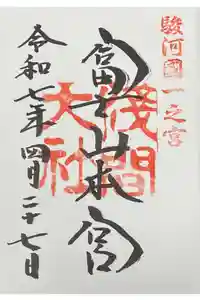 駿河國一之宮
富士山本宮
浅間大社
令和七年四月二十七日